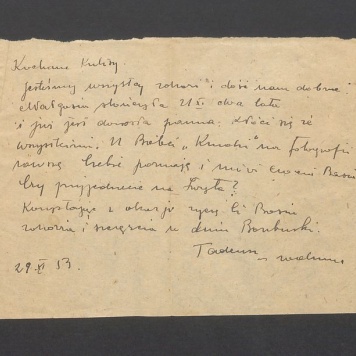 Kochane Kulisy
jesteśmy wszyscy zdrowi i dość nam dobrze.
Małgosia skończyła 21 XI dwa lata
i już jest dorosła panna. Kłóci się ze
wszystkimi. U Babci "Kmotki" na fotografii
zawsze Ciebie poznaje i mówi ciocia Basia
Czy przyjedziecie na Święta?
Korzystając z okazji życzę Ci Basiu
zdrowia i szczęścia w dniu Barburki.
Tadeusz
29.XI 53.